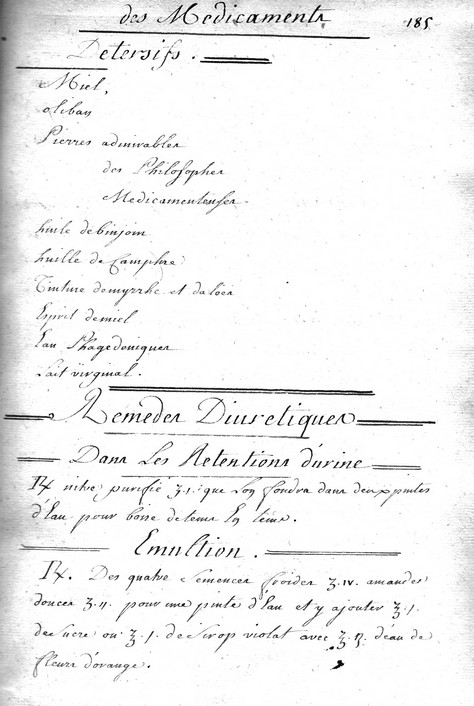 des Medicaments
185
Detersifs.
Miel,
oliban
Pierres admirables
des Philosophes
Medicamenteuses.
huile de binjoin
huille de Camphre
Tinture de myrrhe et daloës
Esprit de miel
Eau Phagedeniques
Lait virginal.
Remedes Diuretiques
Dans Les Retentions d'urine
℞ nitre purifié ʒ.i. que Lon fondra dans deux pintes
d'Eau pour boire de tems En tems.
Emultion.
℞. Des quatre Semences froides ʒ.iv. amandes
douces ʒ.ii. pour une pinte d'Eau et y ajouter ʒ.i.
de Sucre ou ʒ.i. de Sirop violat avec ʒ.ß. d'eau de
fleurs d'orange.